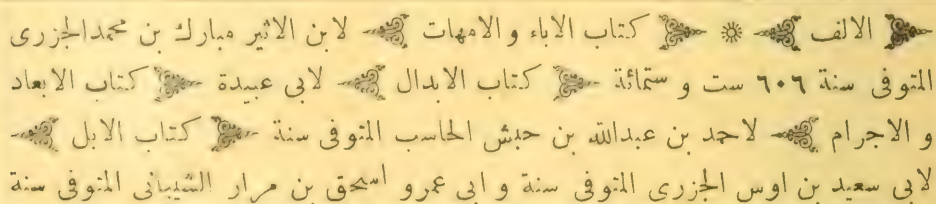 الالف كتاب الاباء والامهات لابن الاثير مبارك بن محمد الجزرى
المتوفى سنة ٦٠٦ ست و ستمائة كتاب الابدال لابى عبيدة كتاب الابعاد
و الاجرام لاحمد بن عبدالله بن حبش الحاسب المتوفى سنة كتاب الابل
لابى سعيد بن اوس الجزرى المتوفى سنة و ابى عمرو اسحق بن مرار الشيبانى المتوفى سنة